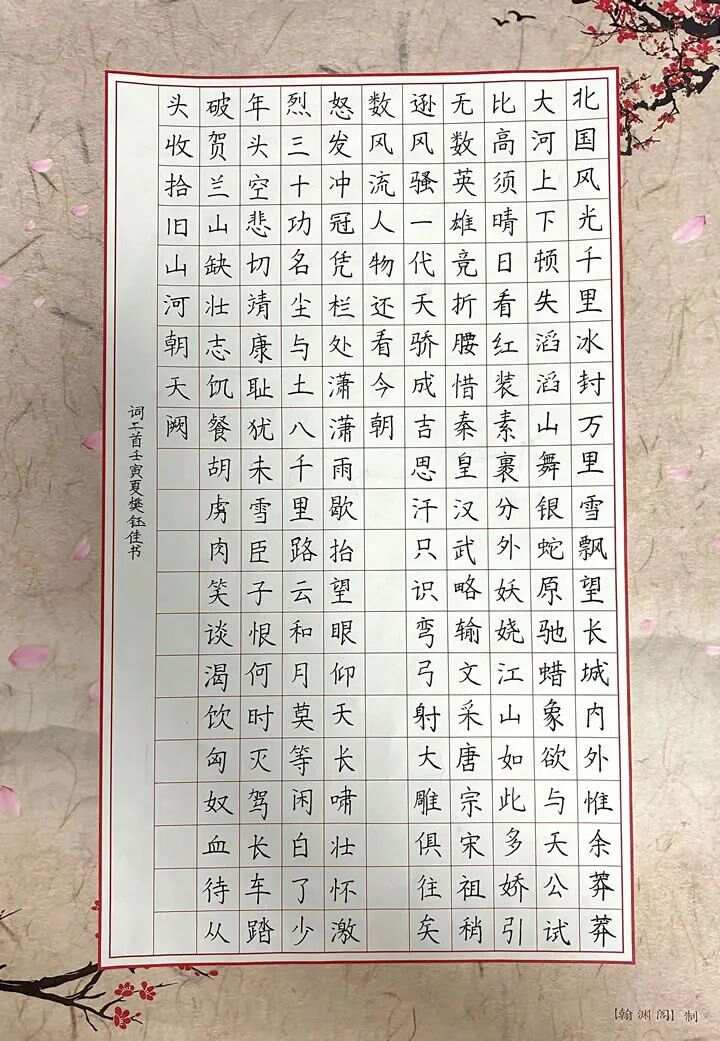 北国风光千里冰封万里雪飘望长城内外惟余莽莽
大河上下顿失滔滔山舞银蛇原驰蜡象欲与天公试
比高须晴日看红装素裹分外妖娆江山如此多娇引
无数英雄竞折腰惜秦皇汉武略输文采唐宗宋祖稍
逊风骚一代天骄成吉思汗只识弯弓射大雕俱往矣
数风流人物还看今朝
怒发冲冠凭栏处潇潇雨歇抬望眼仰天长啸壮怀激
烈三十功名尘与土八千里路云和月莫等闲白了少
年头空悲切靖康耻犹未雪臣子恨何时灭驾长车踏
破贺兰山缺壮志饥餐胡虏肉笑谈渴饮匈奴血待从
头收拾旧山河朝天阙
词二首壬寅夏樊钰佳书
【翰渊阁】制